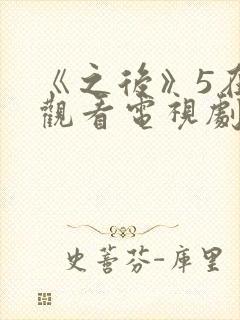 《之後》5在
觀看電視劇
史蒂芬-庫里